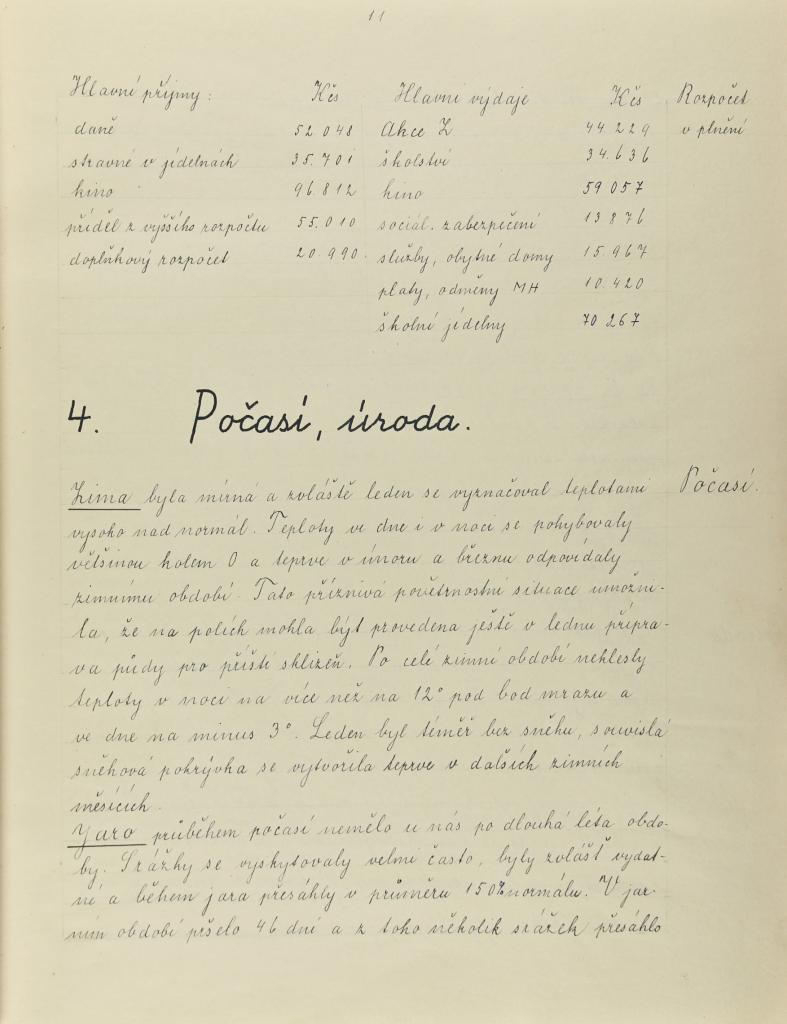 11
Hlavní příjmy: Kčs Hlavní výdaje Kčs Rozpočet
daně 52 048 Akce Z 44.229 v plnění
stravné v jídelnách 35.701 školství 34.636
kino 96.812 kino 59 057
příděl z vyššího rozpočtu 55.010 sociál. zabezpečení 13 876
doplňkový rozpočet 20.990. služby, obytné domy 15.967
platy, odměny MH 10.420
školní jídelny 70 267
4. Počasí, úroda.
Zima byla mírná a zvláště leden se vyznačoval teplotami Počasí.
vysoko nad normál. Teploty ve dne i v noci se pohybovaly
většinou kolem 0 a teprve v únoru a březnu odpovídaly
zimnímu období. Tato příznivá povětrnostní situace umožni-
la, že na polích mohla být provedena ještě v lednu přípra-
va půdy pro příští sklizeň. Po celé zimní období neklesly
teploty v noci na více než na 12° pod bod mrazu a
ve dne na minus 3°. Leden byl téměř bez sněhu, souvislá
sněhová pokrývka se vytvořila teprve v dalších zimních
měsících.
Jaro průběhem počasí nemělo u nás po dlouhá léta obdo-
by. Srážky se vyskytovaly velmi často, byly zvlášť vydat-
né a během jara přesáhly v průměru 150% normálu. V jar-
ním období pršelo 46 dní a z toho několik srážek přesáhlo